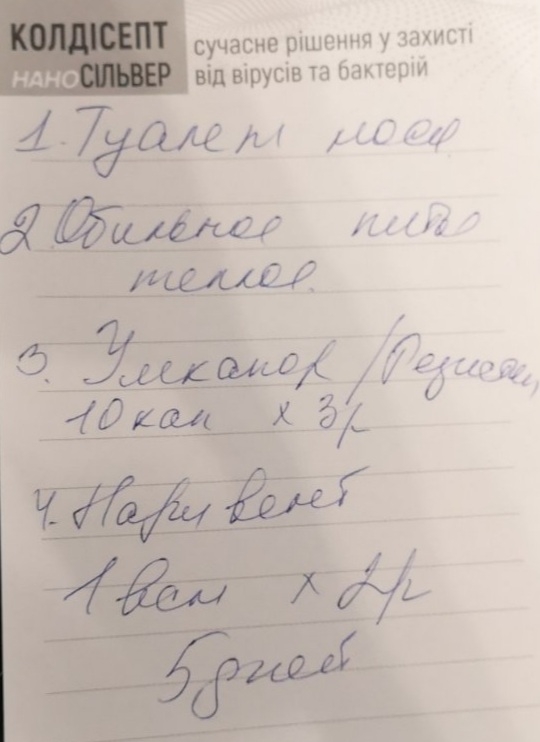 КОЛДІСЕПТ
НАНОСІЛЬВЕР
сучасне рішення у захисті
від вірусів та бактерій
1. Туалет носа
2 Обильное питье
теплое.
3. Умкалор /
10 кап х 3р
4. Нари велет
х 2р
5 дней